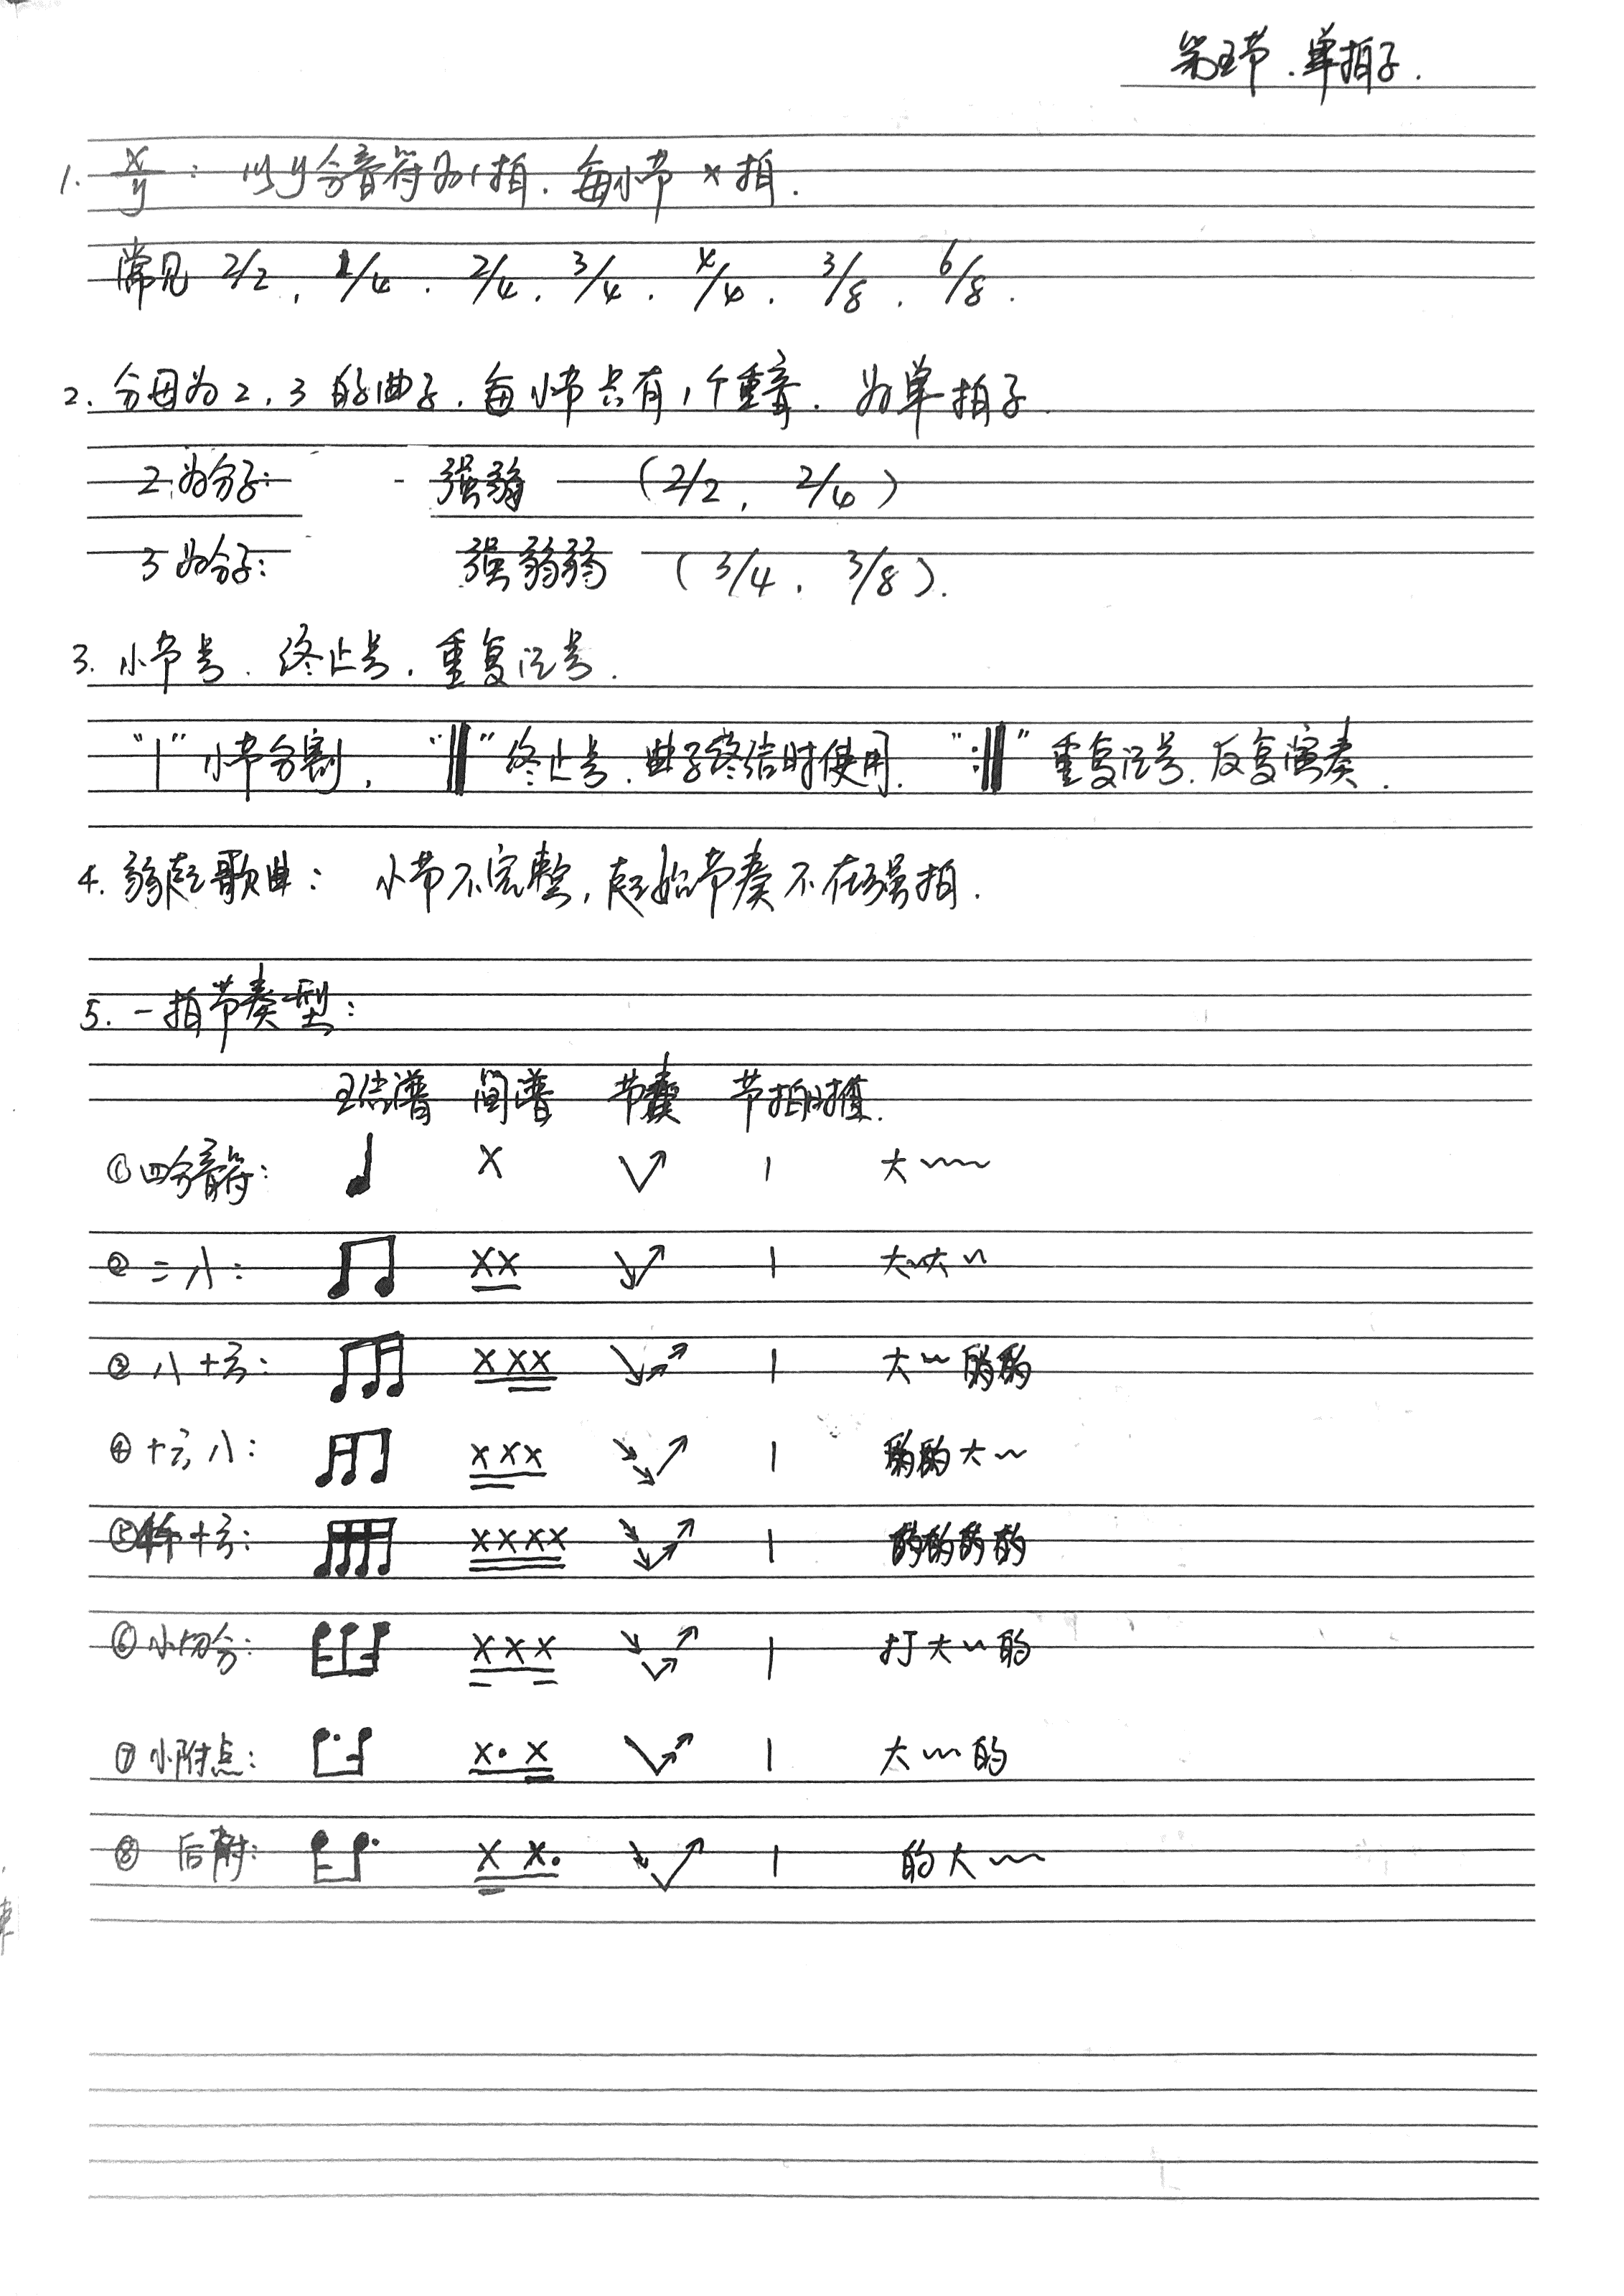 第五节.单拍子.
1. x/y : 以y分音符为1拍.每小节x拍.
常见 2/2, 1/4. 2/4. 3/4. 4/4. 3/8. 6/8.
2. 分母为2,3的曲子.每小节只有1个重音. 为单拍子.
2为分子: - 强弱 (2/2, 2/4)
3为分子: 强弱弱 (3/4, 3/8).
3. 小节号. 终止号. 重复记号.
"|"小节分割, "‖"终止号.曲子终结时使用. ":‖"重复记号.反复演奏.
4. 弱起歌曲: 小节不完整,起始节奏不在强拍.
5. 一拍节奏型:
五线谱 简谱 节奏 节拍时值.
①四分音符: ♩ X 1 大~~
②二八: XX 1 大~大~
③八十六: X XX 1 大~的的
④十六八: XXX 1 的的大~
⑤十六: XXXX 1 的的的的
⑥小切分: X X X 1 打大~的
⑦小附点: X. X 1 大~~的
⑧后附: X X. 1 的大~~